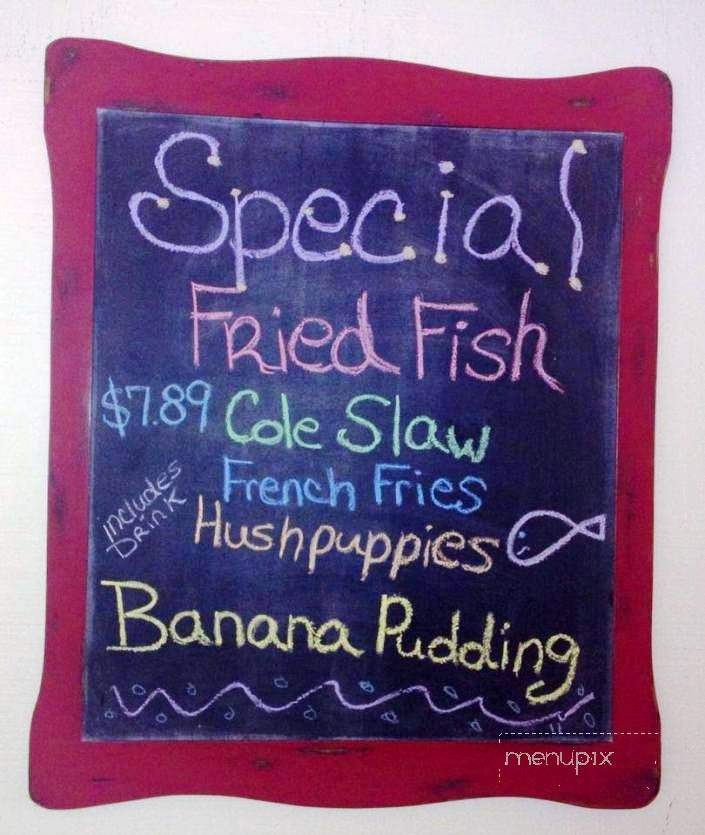 Special
Fried Fish
$7.89 Cole Slaw
French Fries
includes
Drink
Hushpuppies
Banana Pudding
menupix